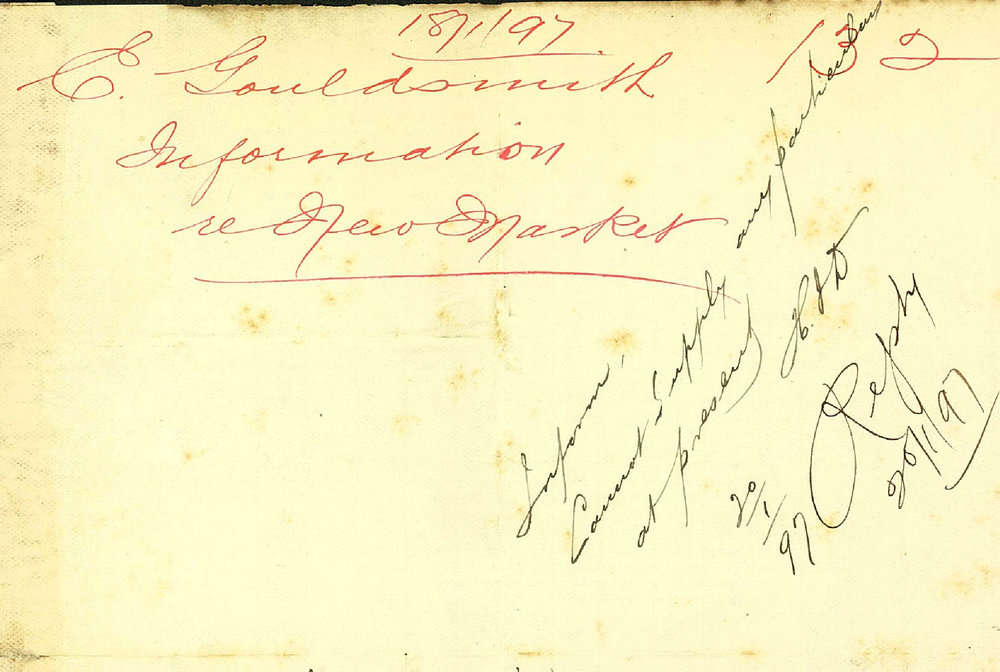 18/1/97.
132
E. Gouldsmith
Information
re New Market
Inform,
Cannot supply any particulars
at present
H.J.D
20/1/97
Reply
20/1/97